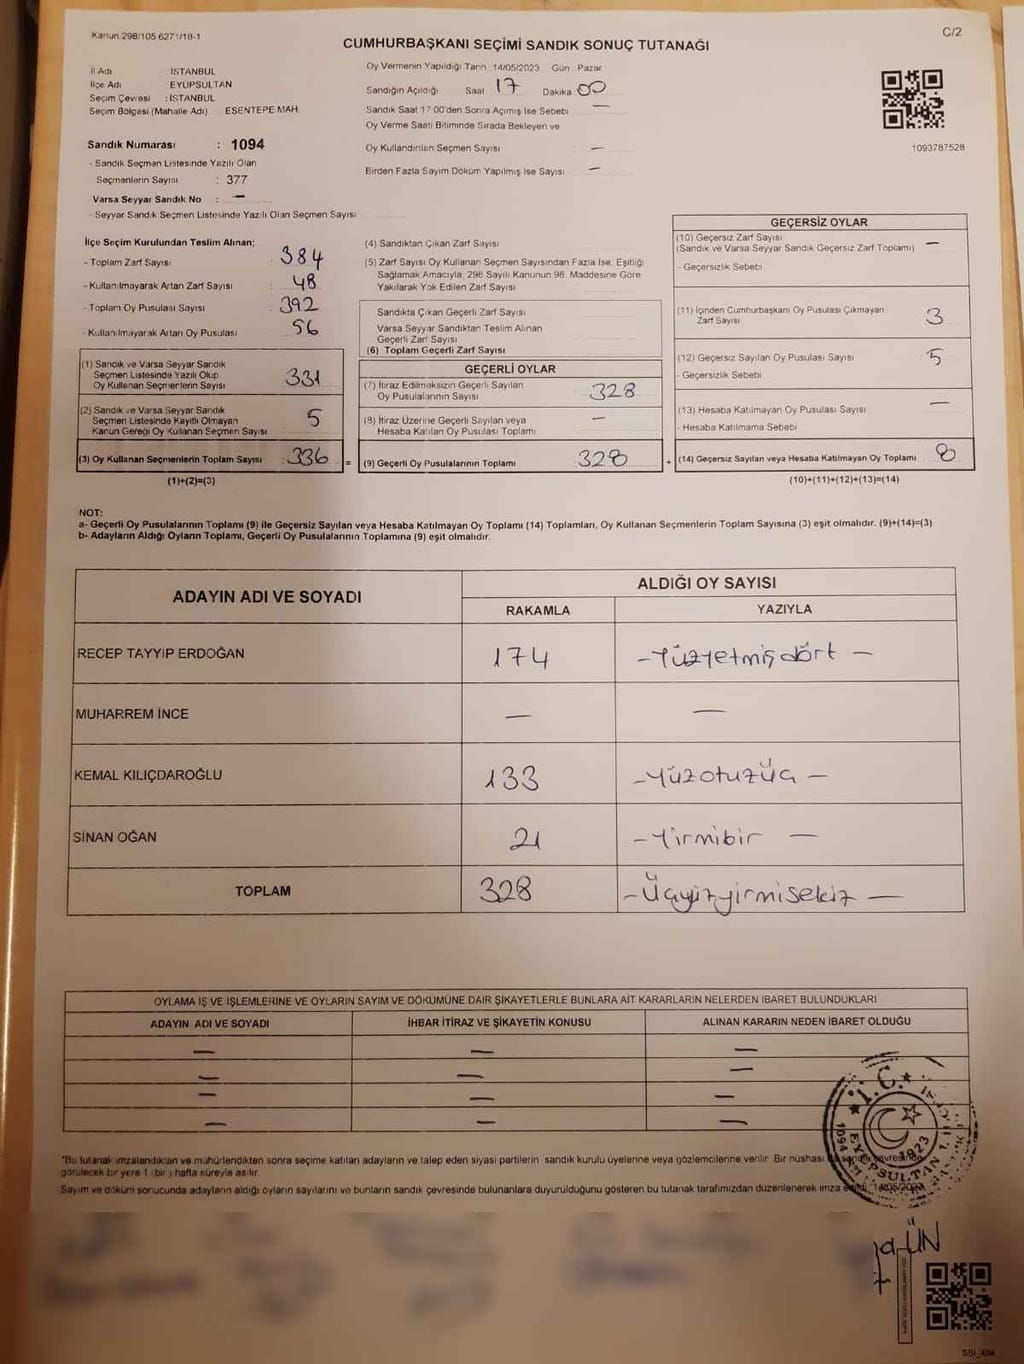 Kanun 298/105 6271/18-1
C/2
CUMHURBAŞKANI SEÇİMİ SANDIK SONUÇ TUTANAĞI
İl Adı : İSTANBUL
İlçe Adı : EYÜPSULTAN
Seçim Çevresi : İSTANBUL
Seçim Bölgesi (Mahalle Adı) ESENTEPE MAH.
Oy Vermenin Yapıldığı Tarih 14/05/2023 Gün Pazar
Sandığın Açıldığı Saat 17 Dakika 00
Sandık Saat 17:00'den Sonra Açımış İse Sebebi —
Oy Verme Saati Bitiminde Sırada Bekleyen ve
Oy Kullandırılan Seçmen Sayısı : —
Birden Fazla Sayım Döküm Yapılmış İse Sayısı —
1093787528
Sandık Numarası : 1094
- Sandık Seçmen Listesinde Yazılı Olan
Seçmenlerin Sayısı : 377
Varsa Seyyar Sandık No : —
- Seyyar Sandık Seçmen Listesinde Yazılı Olan Seçmen Sayısı
İlçe Seçim Kurulundan Teslim Alınan;
- Toplam Zarf Sayısı : 384
- Kullanılmayarak Artan Zarf Sayısı : 48
- Toplam Oy Pusulası Sayısı : 392
- Kullanılmayarak Artan Oy Pusulası 56
(1) Sandık ve Varsa Seyyar Sandık
Seçmen Listesinde Yazılı Olup
Oy Kullanan Seçmenlerin Sayısı 331
(2) Sandık ve Varsa Seyyar Sandık
Seçmen Listesinde Kayıtlı Olmayan
Kanun Gereği Oy Kullanan Seçmen Sayısı 5
(3) Oy Kullanan Seçmenlerin Toplam Sayısı : 336 =
(1)+(2)=(3)
(4) Sandıktan Çıkan Zarf Sayısı
(5) Zarf Sayısı Oy Kullanan Seçmen Sayısından Fazla İse, Eşitliği
Sağlamak Amacıyla, 298 Sayılı Kanunun 98. Maddesine Göre
Yakılarak Yok Edilen Zarf Sayısı
Sandıkta Çıkan Geçerli Zarf Sayısı
Varsa Seyyar Sandıktan Teslim Alınan
Geçerli Zarf Sayısı
(6) Toplam Geçerli Zarf Sayısı
GEÇERLİ OYLAR
(7) İtiraz Edilmeksizin Geçerli Sayılan
Oy Pusulalarının Sayısı 328
(8) İtiraz Üzerine Geçerli Sayılan veya
Hesaba Katılan Oy Pusulası Toplamı —
(9) Geçerli Oy Pusulalarının Toplamı 328 +
GEÇERSİZ OYLAR
(10) Geçersiz Zarf Sayısı
(Sandık ve Varsa Seyyar Sandık Geçersiz Zarf Toplamı) —
- Geçersizlik Sebebi
(11) İçinden Cumhurbaşkanı Oy Pusulası Çıkmayan
Zarf Sayısı 3
(12) Geçersiz Sayılan Oy Pusulası Sayısı 5
- Geçersizlik Sebebi
(13) Hesaba Katılmayan Oy Pusulası Sayısı —
- Hesaba Katılmama Sebebi
(14) Geçersiz Sayılan veya Hesaba Katılmayan Oy Toplamı 8
(10)+(11)+(12)+(13)=(14)
NOT:
a- Geçerli Oy Pusulalarının Toplamı (9) ile Geçersiz Sayılan veya Hesaba Katılmayan Oy Toplamı (14) Toplamları, Oy Kullanan Seçmenlerin Toplam Sayısına (3) eşit olmalıdır. (9)+(14)=(3)
b- Adayların Aldığı Oyların Toplamı, Geçerli Oy Pusulalarının Toplamına (9) eşit olmalıdır.
ADAYIN ADI VE SOYADI
ALDIĞI OY SAYISI
RAKAMLA YAZIYLA
RECEP TAYYİP ERDOĞAN 174 -Yüzyetmişdört —
MUHARREM İNCE — —
KEMAL KILIÇDAROĞLU 133 -Yüzotuzüç —
SİNAN OĞAN 21 -Yirmibir —
TOPLAM 328 -Üçyüzyirmisekiz —
OYLAMA İŞ VE İŞLEMLERİNE VE OYLARIN SAYIM VE DÖKÜMÜNE DAİR ŞİKAYETLERLE BUNLARA AİT KARARLARIN NELERDEN İBARET BULUNDUKLARI
ADAYIN ADI VE SOYADI İHBAR İTİRAZ VE ŞİKAYETİN KONUSU ALINAN KARARIN NEDEN İBARET OLDUĞU
— — —
— — —
— — —
— — —
T.C.
1094
EYÜPSULTAN 1.
1923
"Bu tutanak imzalandıktan ve mühürlendikten sonra seçime katılan adayların ve talep eden siyasi partilerin sandık kurulu üyelerine veya gözlemcilerine verilir. Bir nüshası da sandık çevresinde
görülecek bir yere 1 (bir) hafta süreyle asılır.
Sayım ve döküm sonucunda adayların aldığı oyların sayılarını ve bunların sandık çevresinde bulunanlara duyurulduğunu gösteren bu tutanak tarafımızdan düzenlenerek imza edildi. 14/05/2023
ÜN